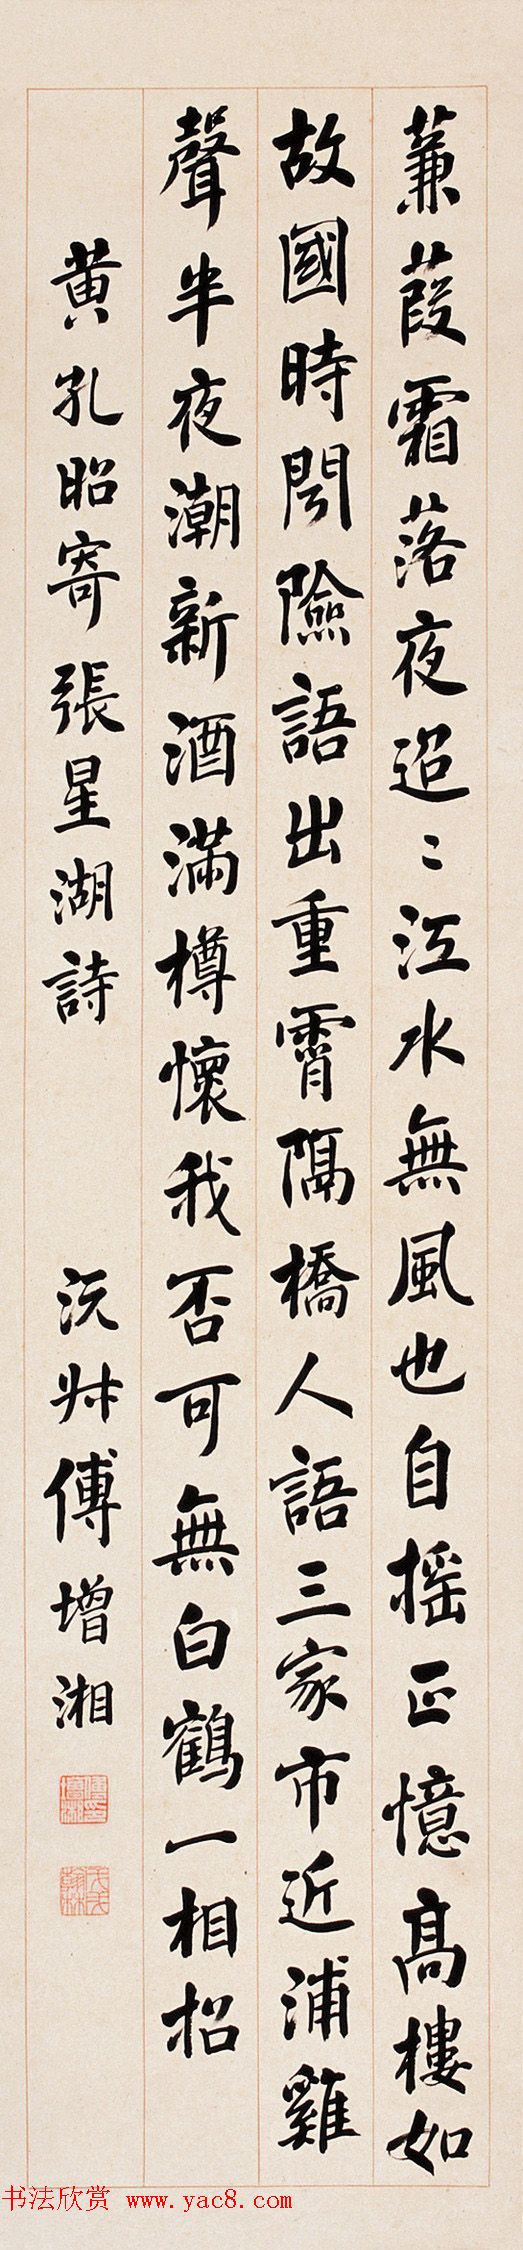 蒹葭霜落夜迢〻江水無風也自搖正憶高樓如
故國時聞險語出重霄隔橋人語三家市近浦雞
聲半夜潮新酒滿樽懷我否可無白鶴一相招
黄孔昭寄張星湖詩 沅叔傅增湘
書法欣赏 www.yac8.com